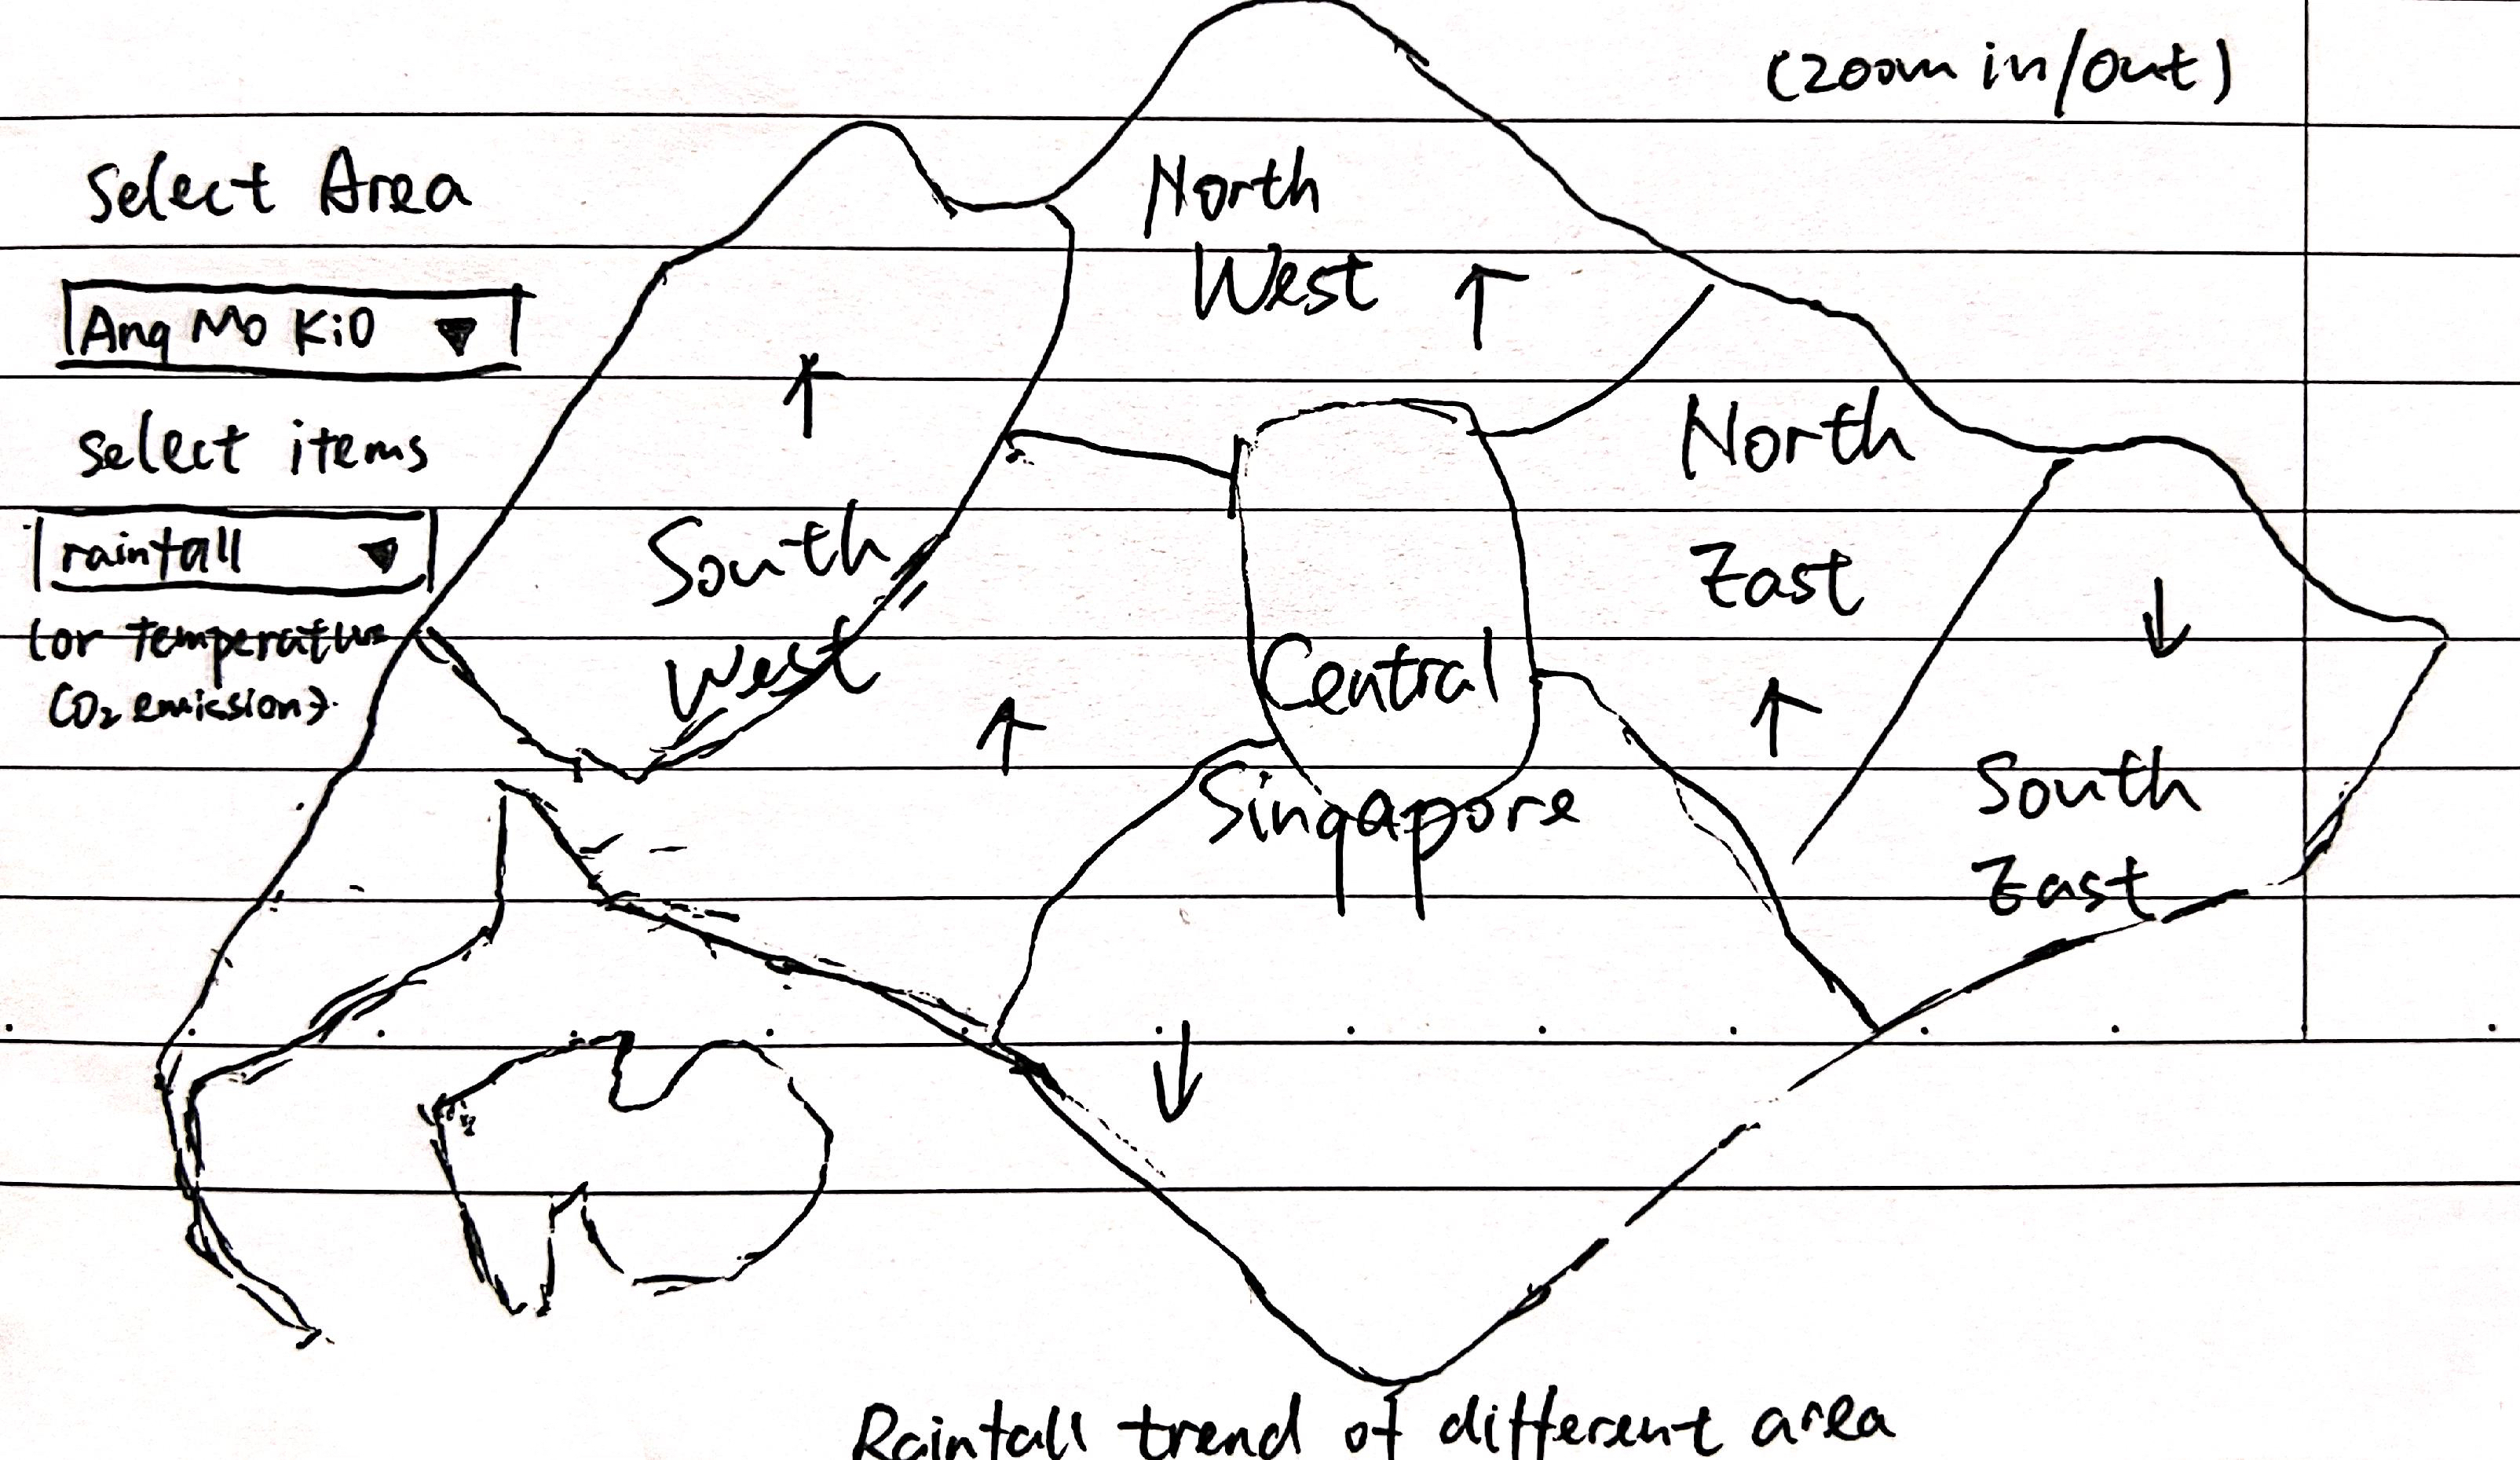 (zoom in/out)
Select Area
Ang Mo Kio
select items
rainfall
(or temperature
CO2 emission)
North
West
North
East
South
West
Central
Singapore
South
East
Rainfall trend of different area